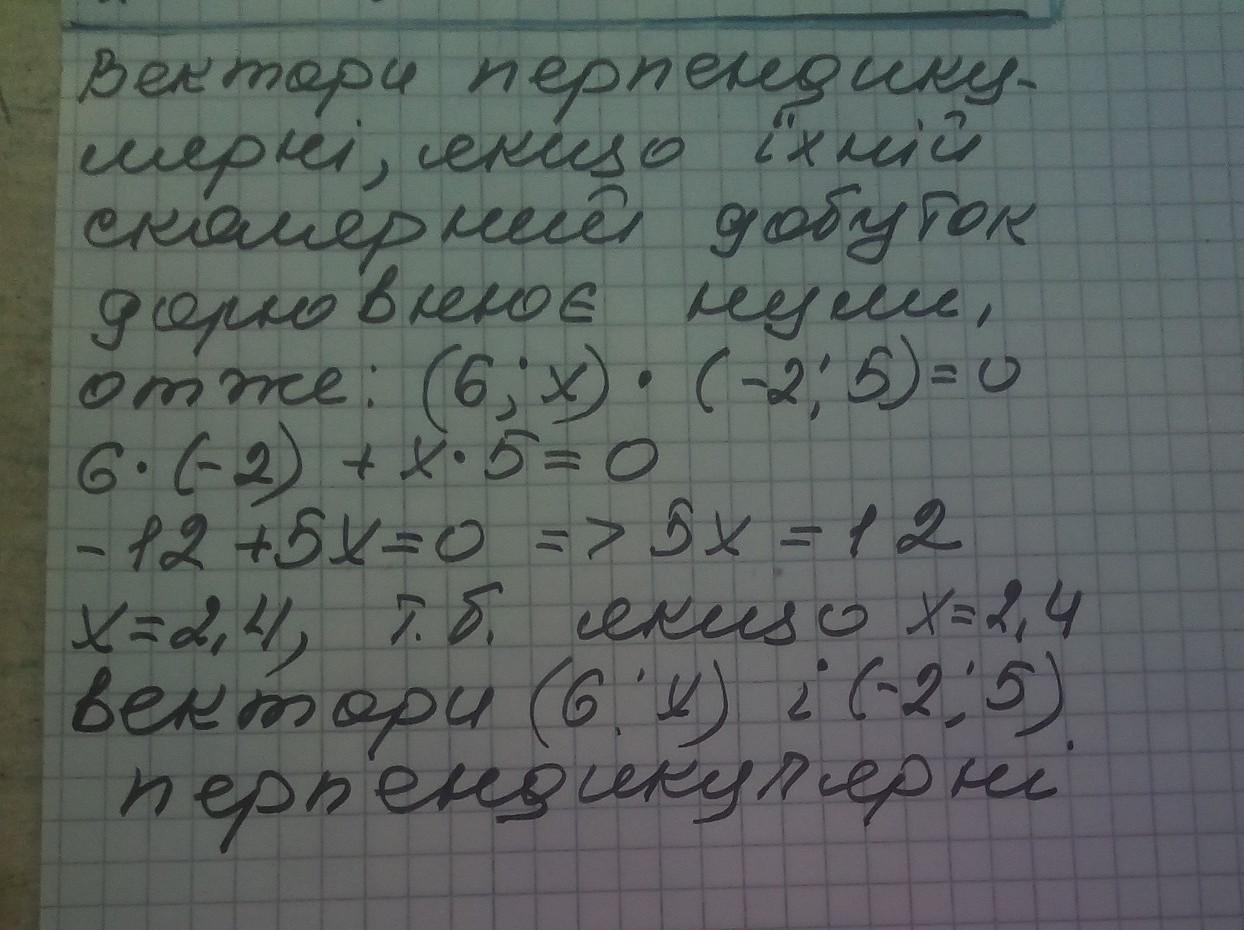 Вектори перпендику-
лярні, якщо їхній
скалярний добуток
дорівнює нулю,
отже: (6; x) · (-2; 5) = 0
6 · (-2) + x · 5 = 0
-12 + 5x = 0 => 5x = 12
x = 2,4, т.б. якщо x = 2,4
вектори (6; x) і (-2; 5)
перпендикулярні.